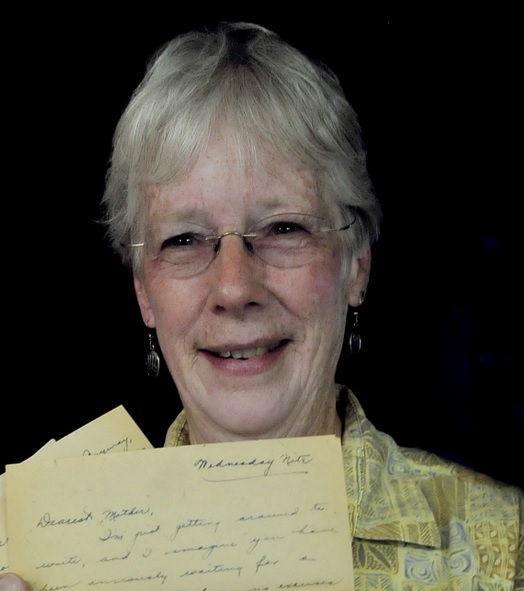 Wednesday Nite
Dearest Mother,
I'm just getting around to
write, and I imagine you have
been anxiously waiting for a
no excuses